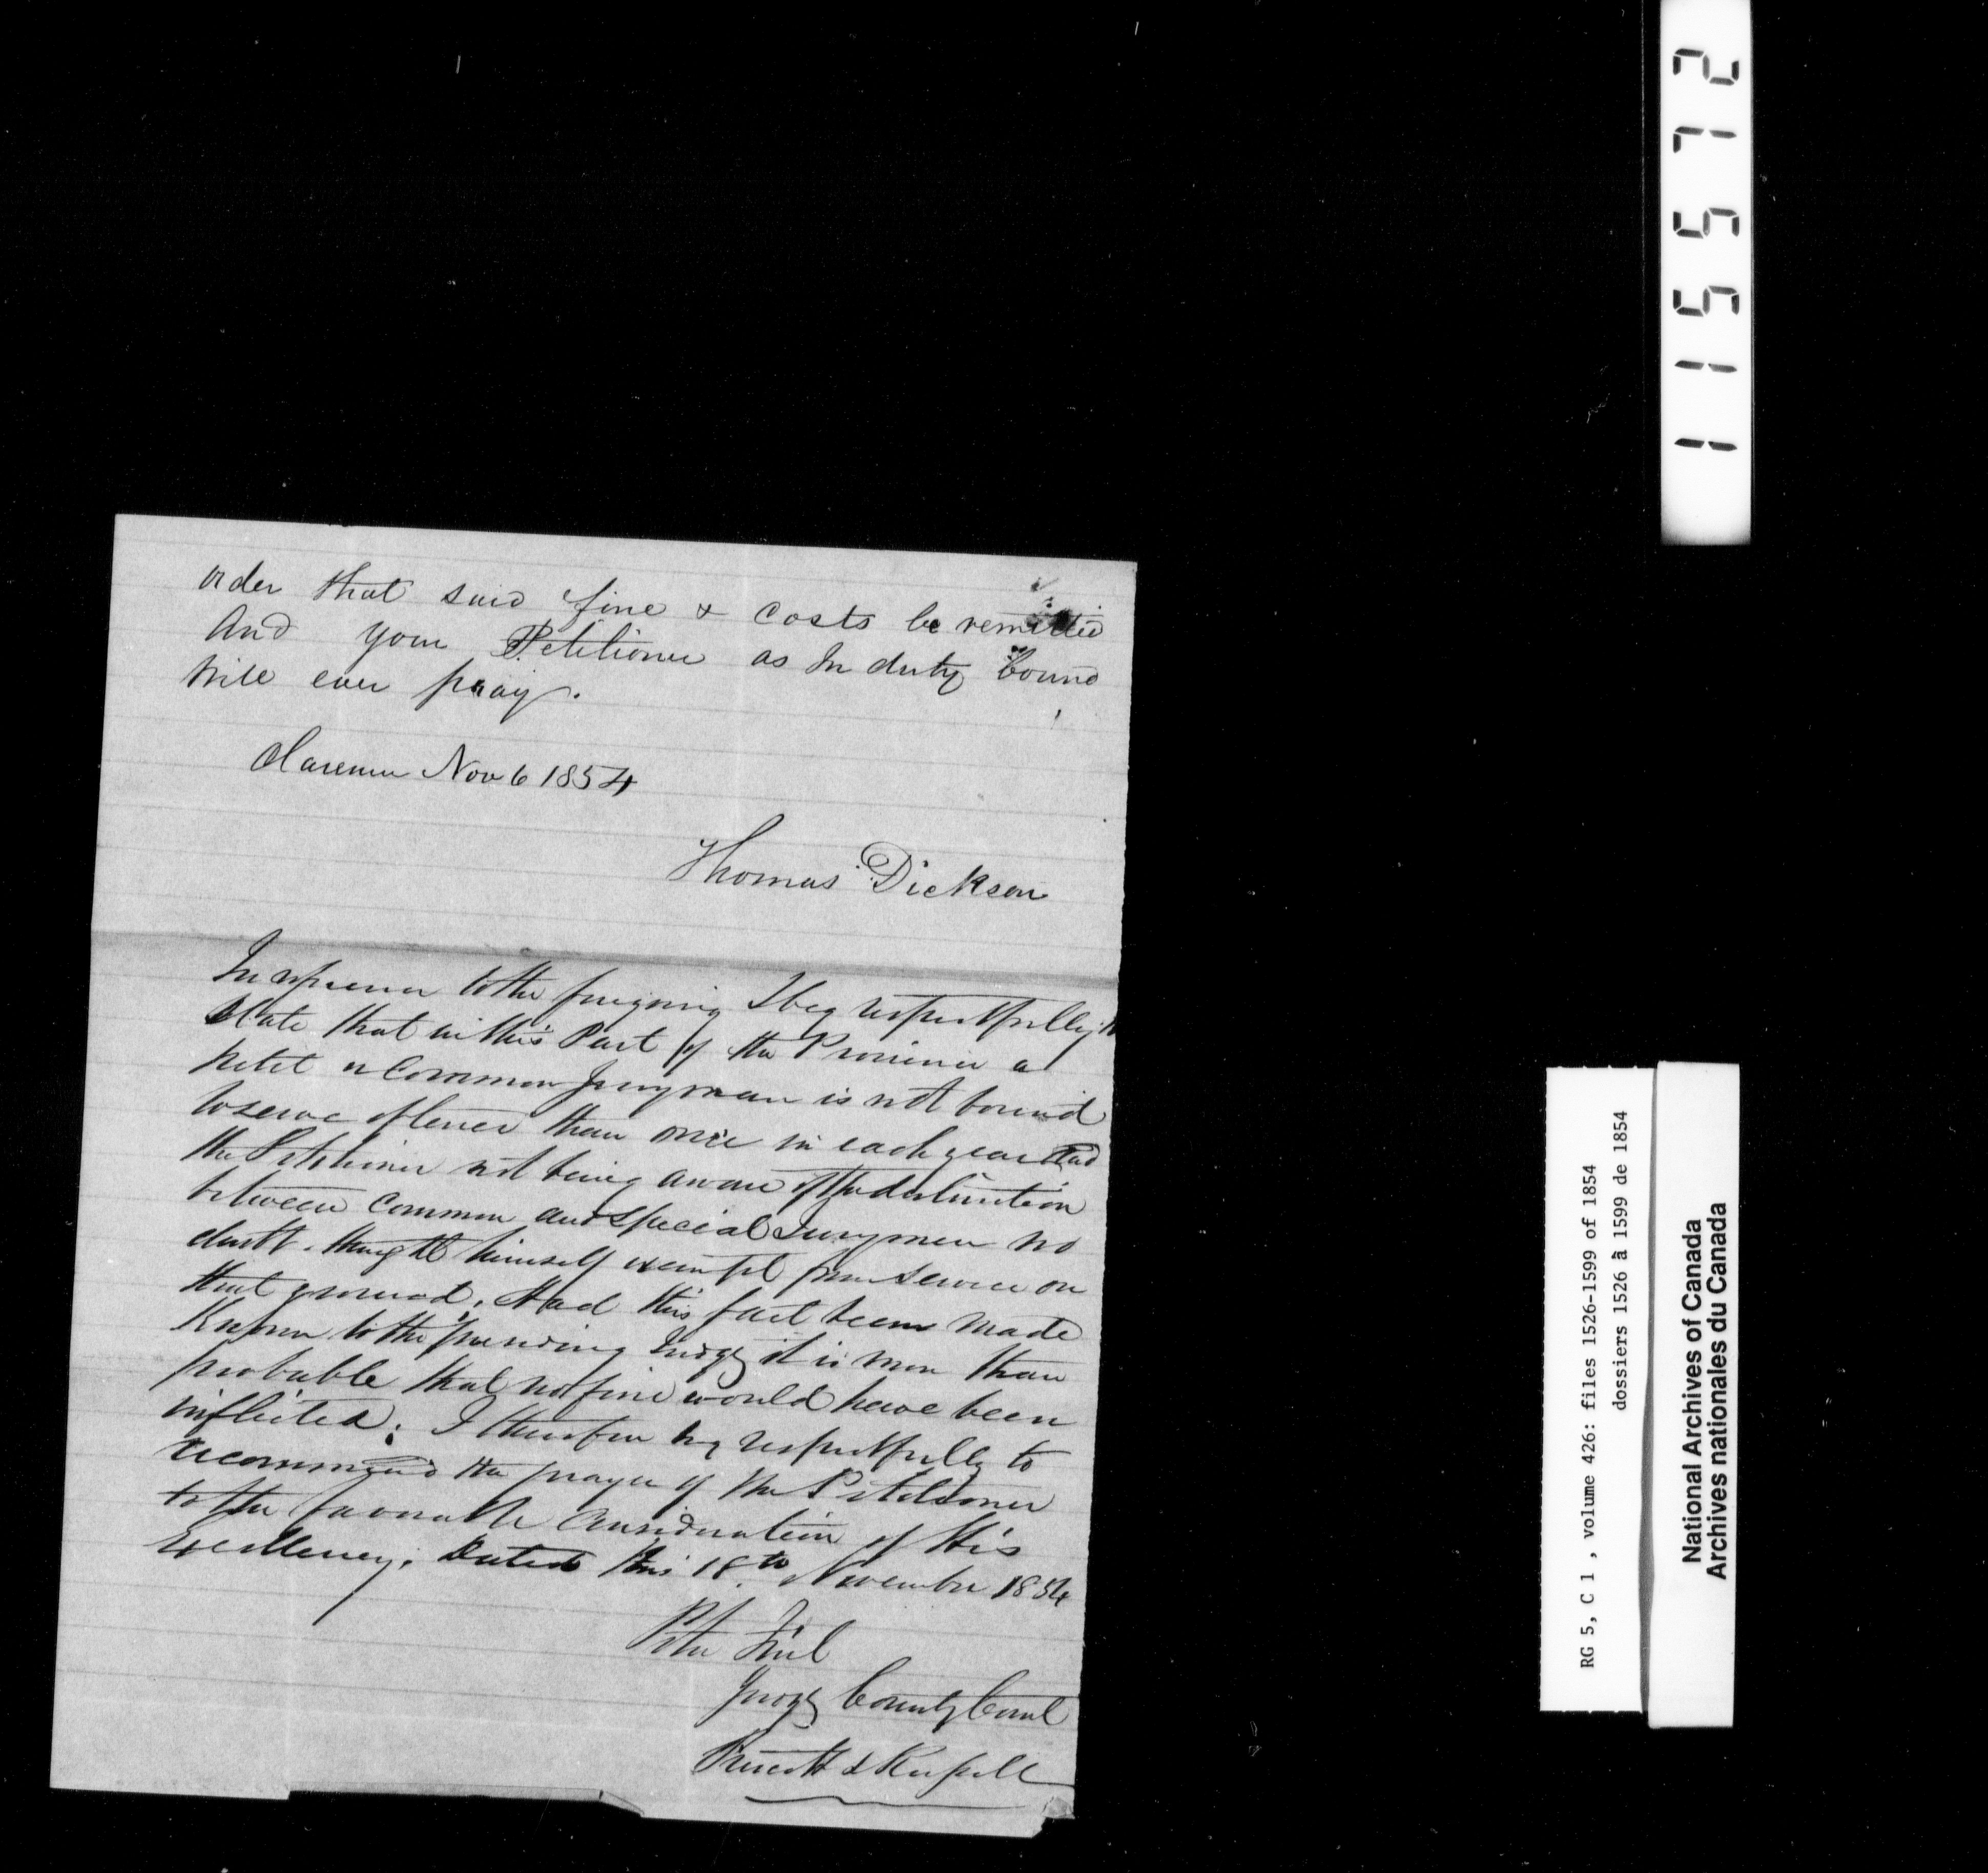 order that said fine & costs be remitted
And your Petitioner as In duty bound
will ever pray.
Clarence Nov 6 1854
Thomas Dickson
In reference to the foregoing I beg respectfully to
state that in this Part of the Province a
petit or Common Juryman is not bound
to serve oftener than once in each year and
the Petitioner not being aware of the distinction
between Common and Special Jurymen no
doubt thought himself exempt from service on
that ground. Had this fact been made
Known to the presiding Judge it is more than
probable that no fine would have been
inflicted; I therefore beg respectfully to
recommend the prayer of the Petitioner
to the favorable Consideration of His
Excellency. Dated this 18th November 1854
Peter
Judge County Court
Prescott & Russell
115572
RG 5, C 1 , volume 426: files 1526-1599 of 1854
dossiers 1526 à 1599 de 1854
National Archives of Canada
Archives nationales du Canada